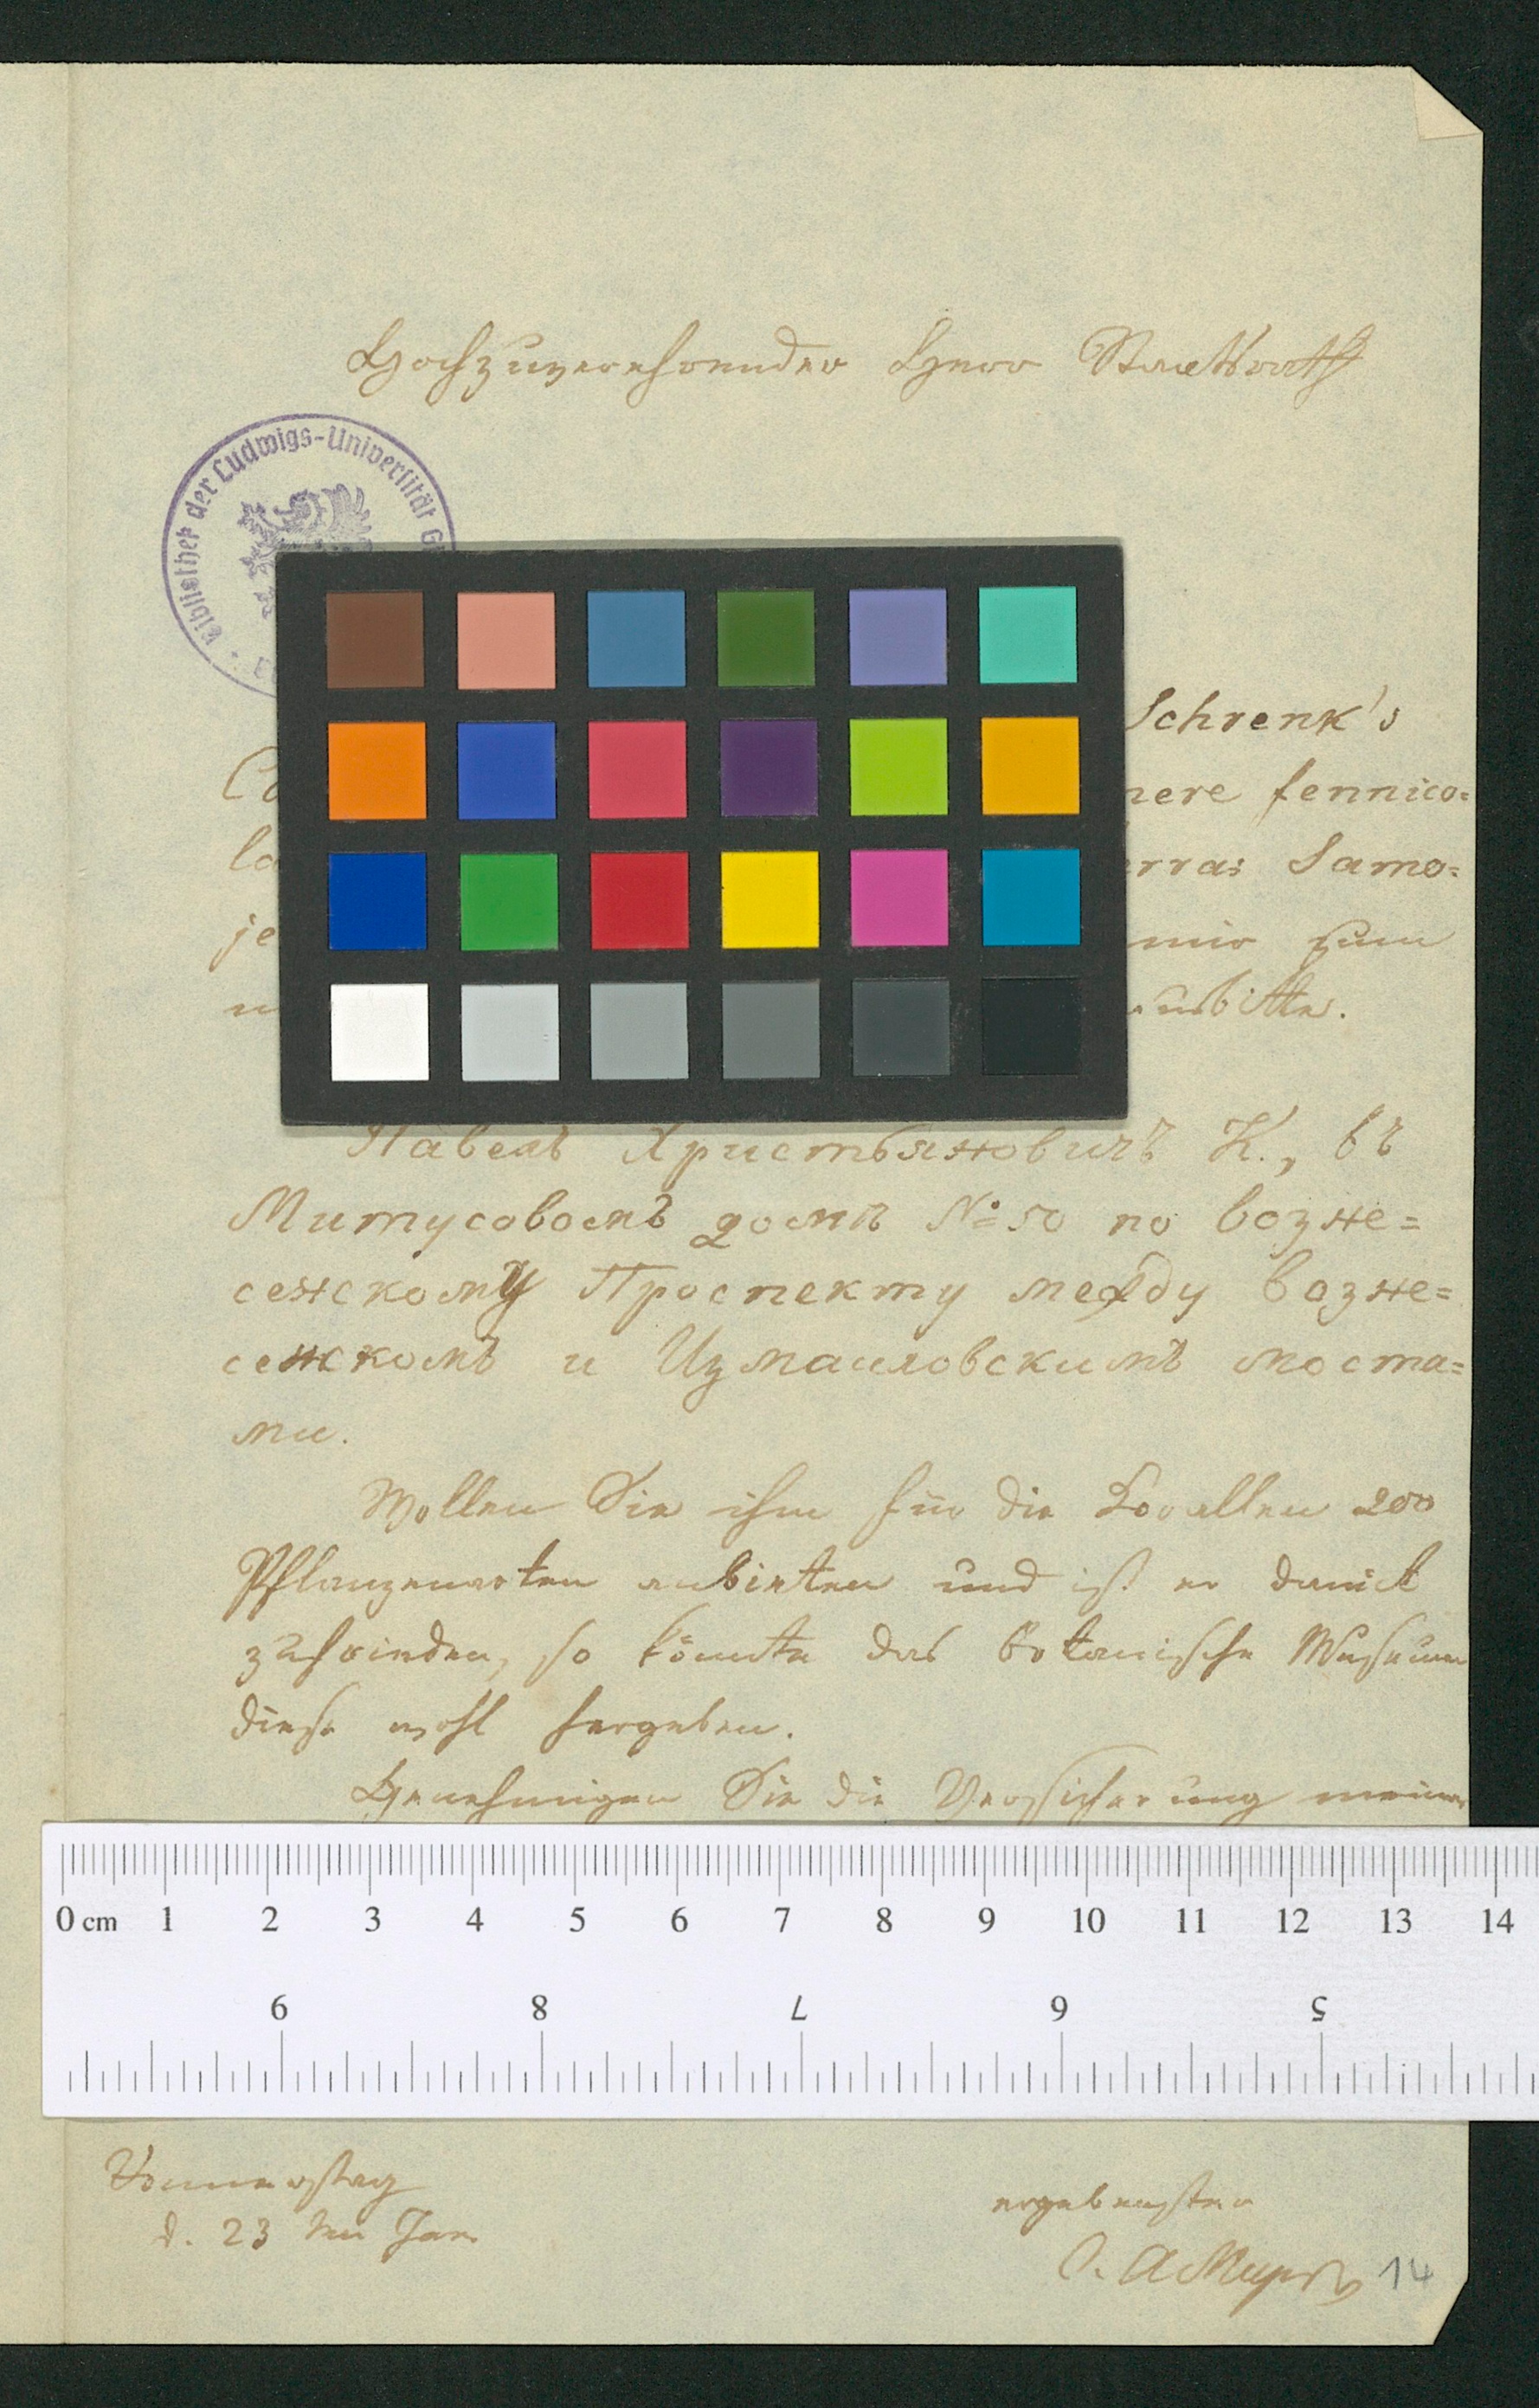 Hochzuverehrender Herr Staatsrath
Bibliothek der Ludwigs-Universität
Schrenk's
nere fennico=
erras Samo=
je mir zum
ausbitte.
Павелъ Христьяновичъ К., въ
Митусовомъ домѣ № 50 по возне=
сенскому Проспекту между возне=
сенскомъ и Измаиловскимъ моста=
ми.
Wollen Sie ihm für die Corallen 200
Pflanzenarten anbieten und ist er damit
zufrieden, so könnte das botanische Museum
diese wohl hergeben.
Genehmigen Sie die Versicherung meiner
0 cm 1 2 3 4 5 6 7 8 9 10 11 12 13 14
9 8 7 6 5
Donnerstag
d. 23 Jan
ergebenster
C. A Meyer 14